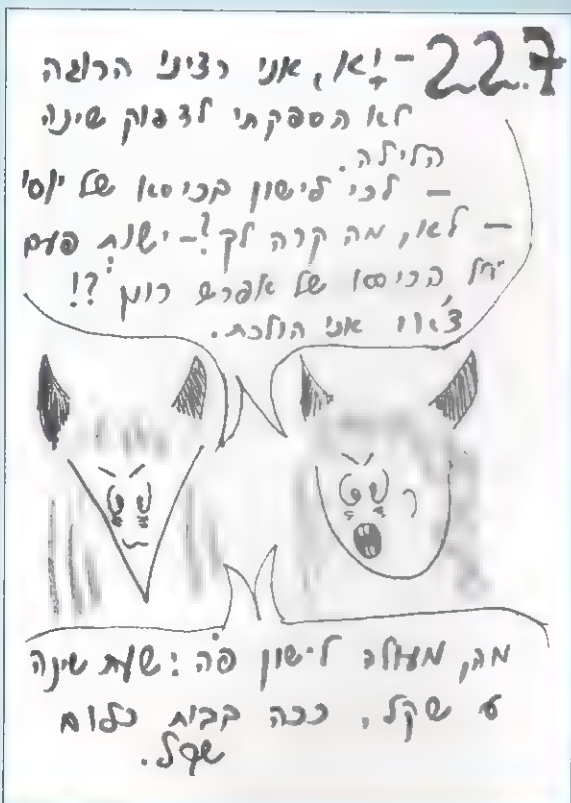 22.7
- לא, אני רציני הרוגה
לא הספקתי לדפוק שינה
הלילה.
- לכי לישון בכיסא של יוסי
- לא, מה קרה לך? - ישנת פעם
על הכיסא של אפרים רומן?!
צ'או אני הולכת.
מה, מעולה לישון פה: שעת שינה
6 שקל, ככה בבות כלום
שקל.